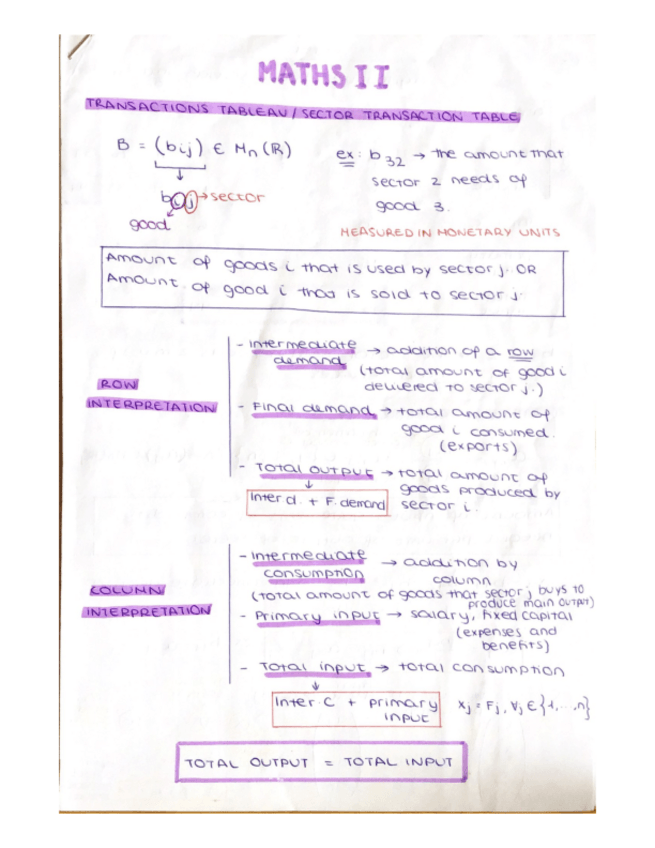 MATHS II
TRANSACTIONS TABLEAU / SECTOR TRANSACTION TABLE
B = (bij) ∈ Mn (R)
ex: b32 → the amount that
sector 2 needs of
good 3.
bij → sector
good
MEASURED IN MONETARY UNITS
Amount of goods i that is used by sector j. OR
Amount of good i that is sold to sector j.
ROW
INTERPRETATION
- Intermediate → addition of a row
demand (total amount of good i
delivered to sector j.)
- Final demand → total amount of
good i consumed.
(exports)
- Total output → total amount of
↓ goods produced by
Inter d. + F. demand sector i.
COLUMN
INTERPRETATION
- Intermediate → addition by
consumption column
(total amount of goods that sector j buys to
produce main output)
- Primary input → salary, fixed capital
(expenses and
benefits)
- Total input → total consumption
↓
Inter. C + primary
input
xj = Fj, ∀j ∈ {1,...,n}
TOTAL OUTPUT = TOTAL INPUT